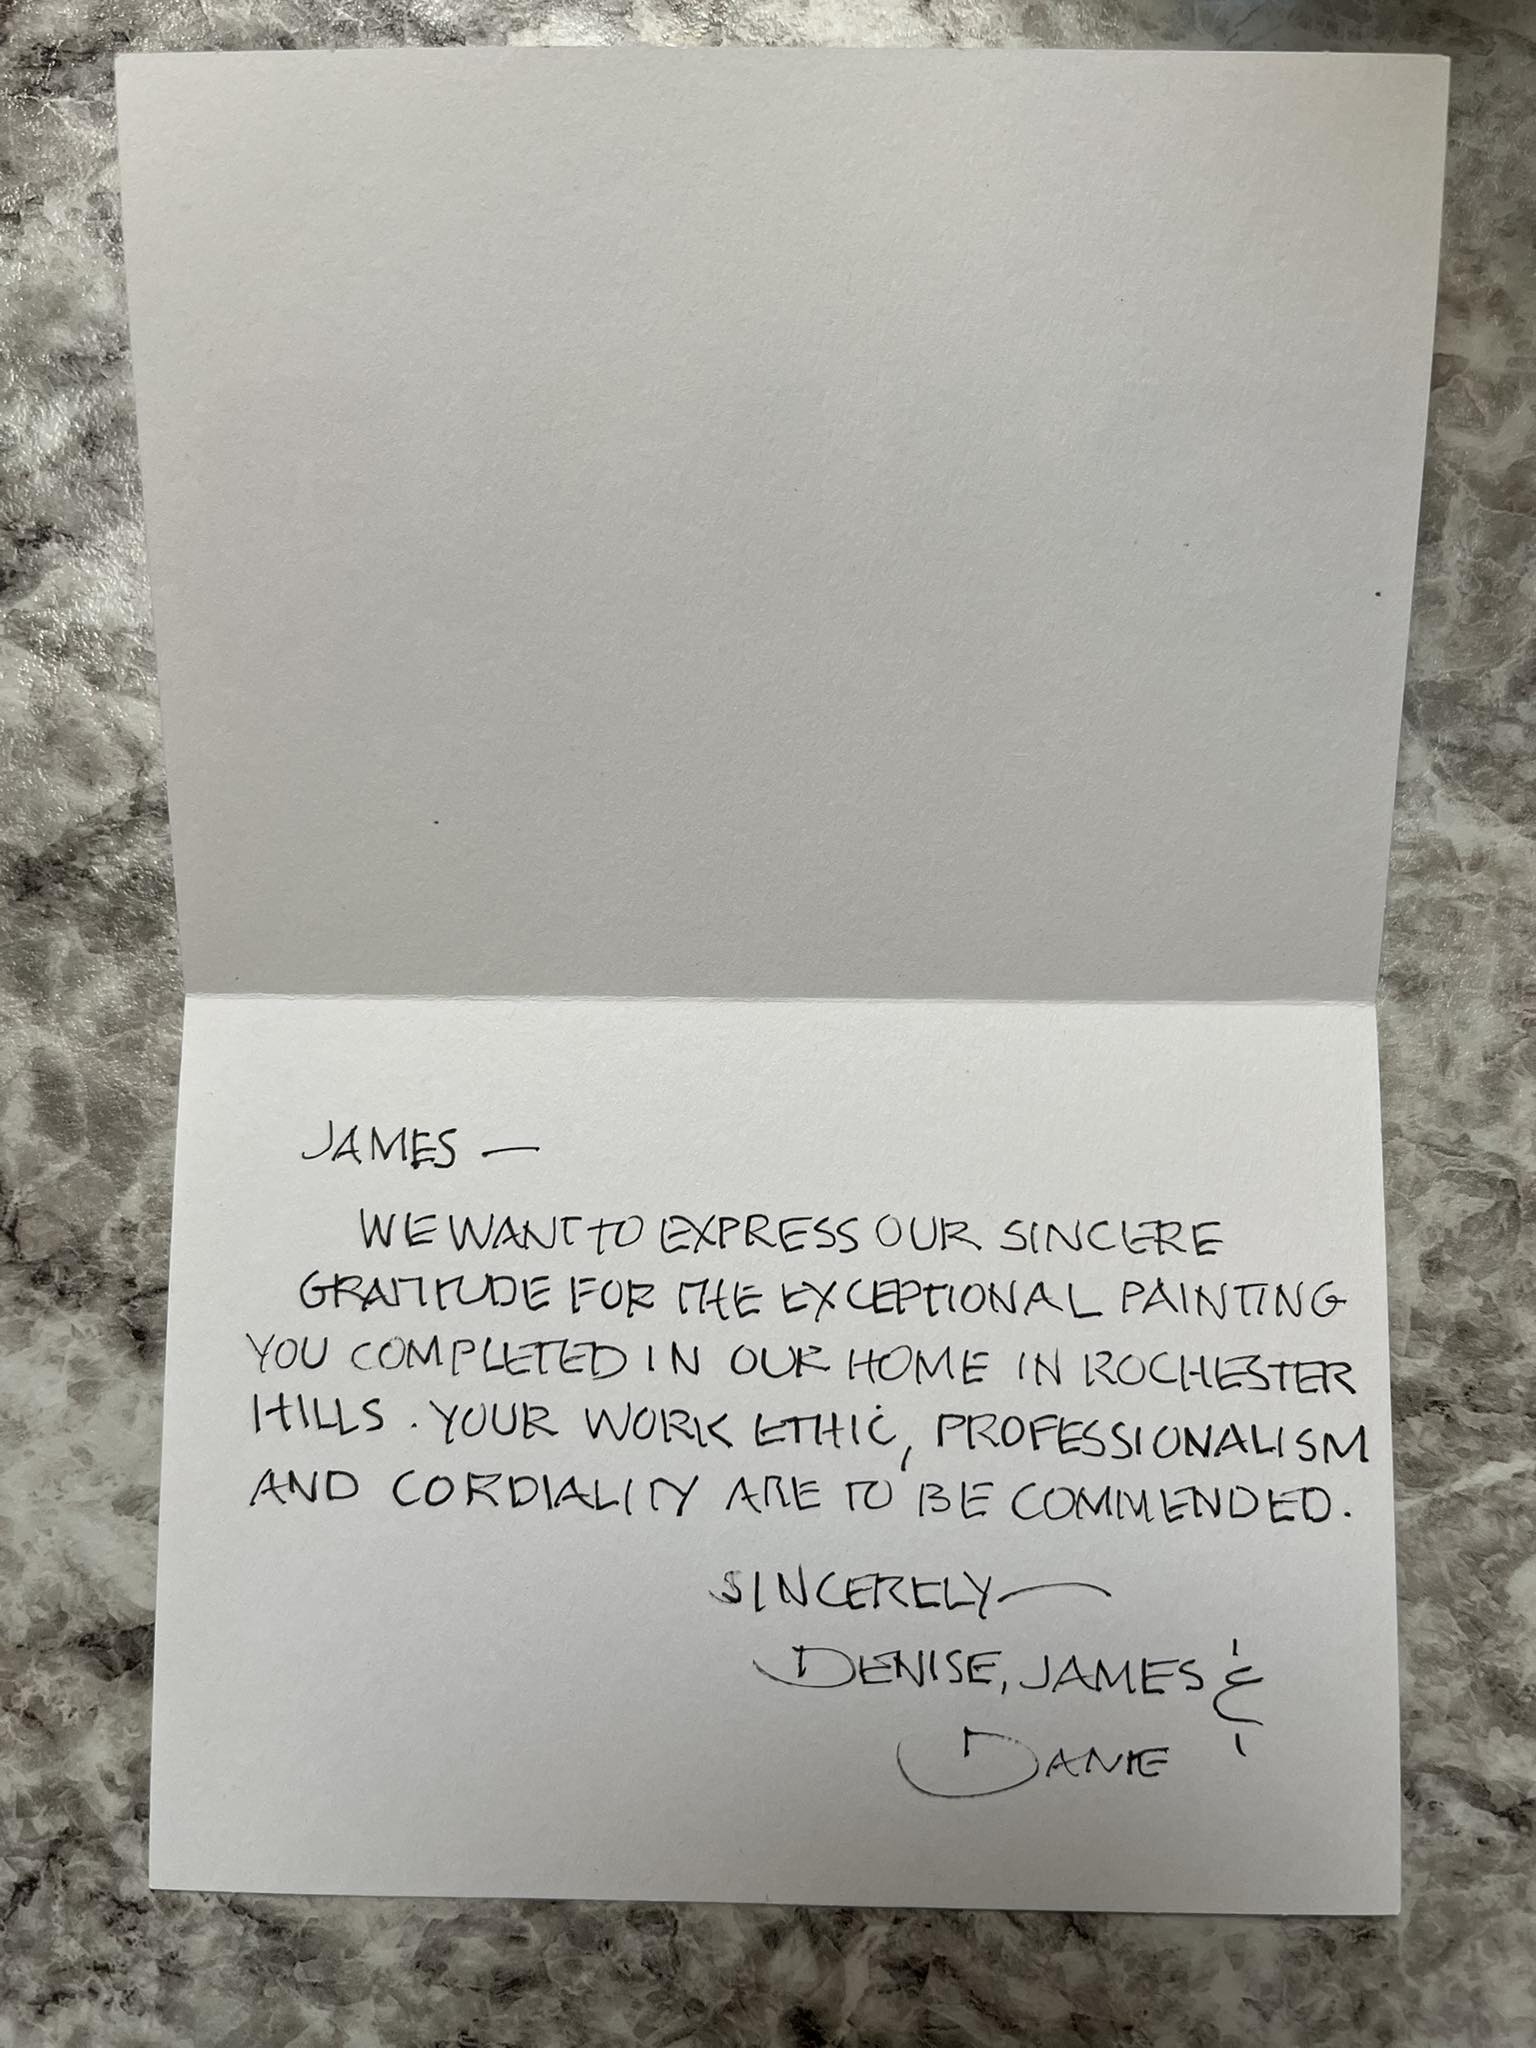 JAMES —
WE WANT TO EXPRESS OUR SINCERE
GRATITUDE FOR THE EXCEPTIONAL PAINTING
YOU COMPLETED IN OUR HOME IN ROCHESTER
HILLS. YOUR WORK ETHIC, PROFESSIONALISM
AND CORDIALITY ARE TO BE COMMENDED.
SINCERELY—
DENISE, JAMES &
DANIE